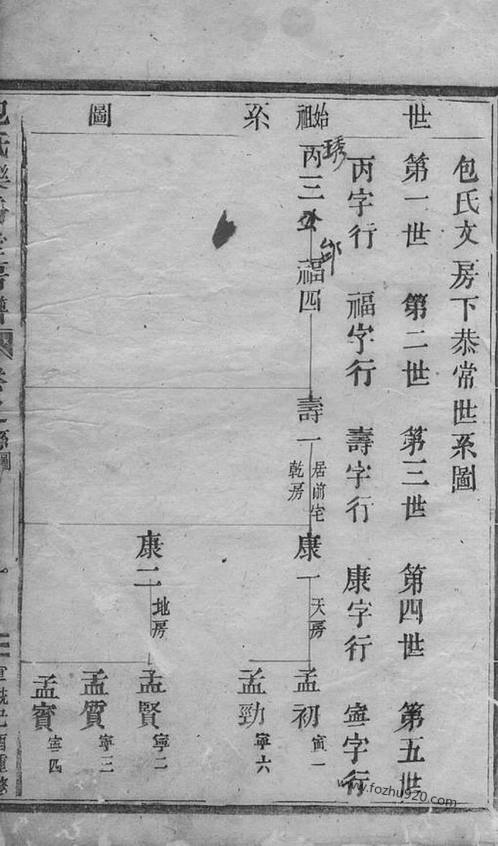 世系圖
包氏文房下恭常世系圖
第一世 第二世 第三世 第四世 第五世
丙字行 福字行 壽字行 康字行 寧字行
始祖
丙三公
琇
福四
壽一
居前宅
乾房
康一
天房
孟初
寅一
孟勁
寧六
康二
地房
孟賢
寧二
孟質
寧三
孟賓
寧四
www.fozhu920.com